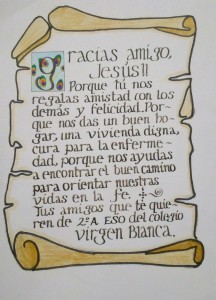 Gracias amigo,
Jesús!!
Porque tú nos
regalas amistad con los
demás y felicidad. Por-
que nos das un buen ho-
gar, una vivienda digna,
cura para la enferme-
dad, porque nos ayudas
a encontrar el buen camino
para orientar nuestras
vidas en la fe.
Tus amigos que te quie-
ren de 2º A ESO del colegio
Virgen Blanca.